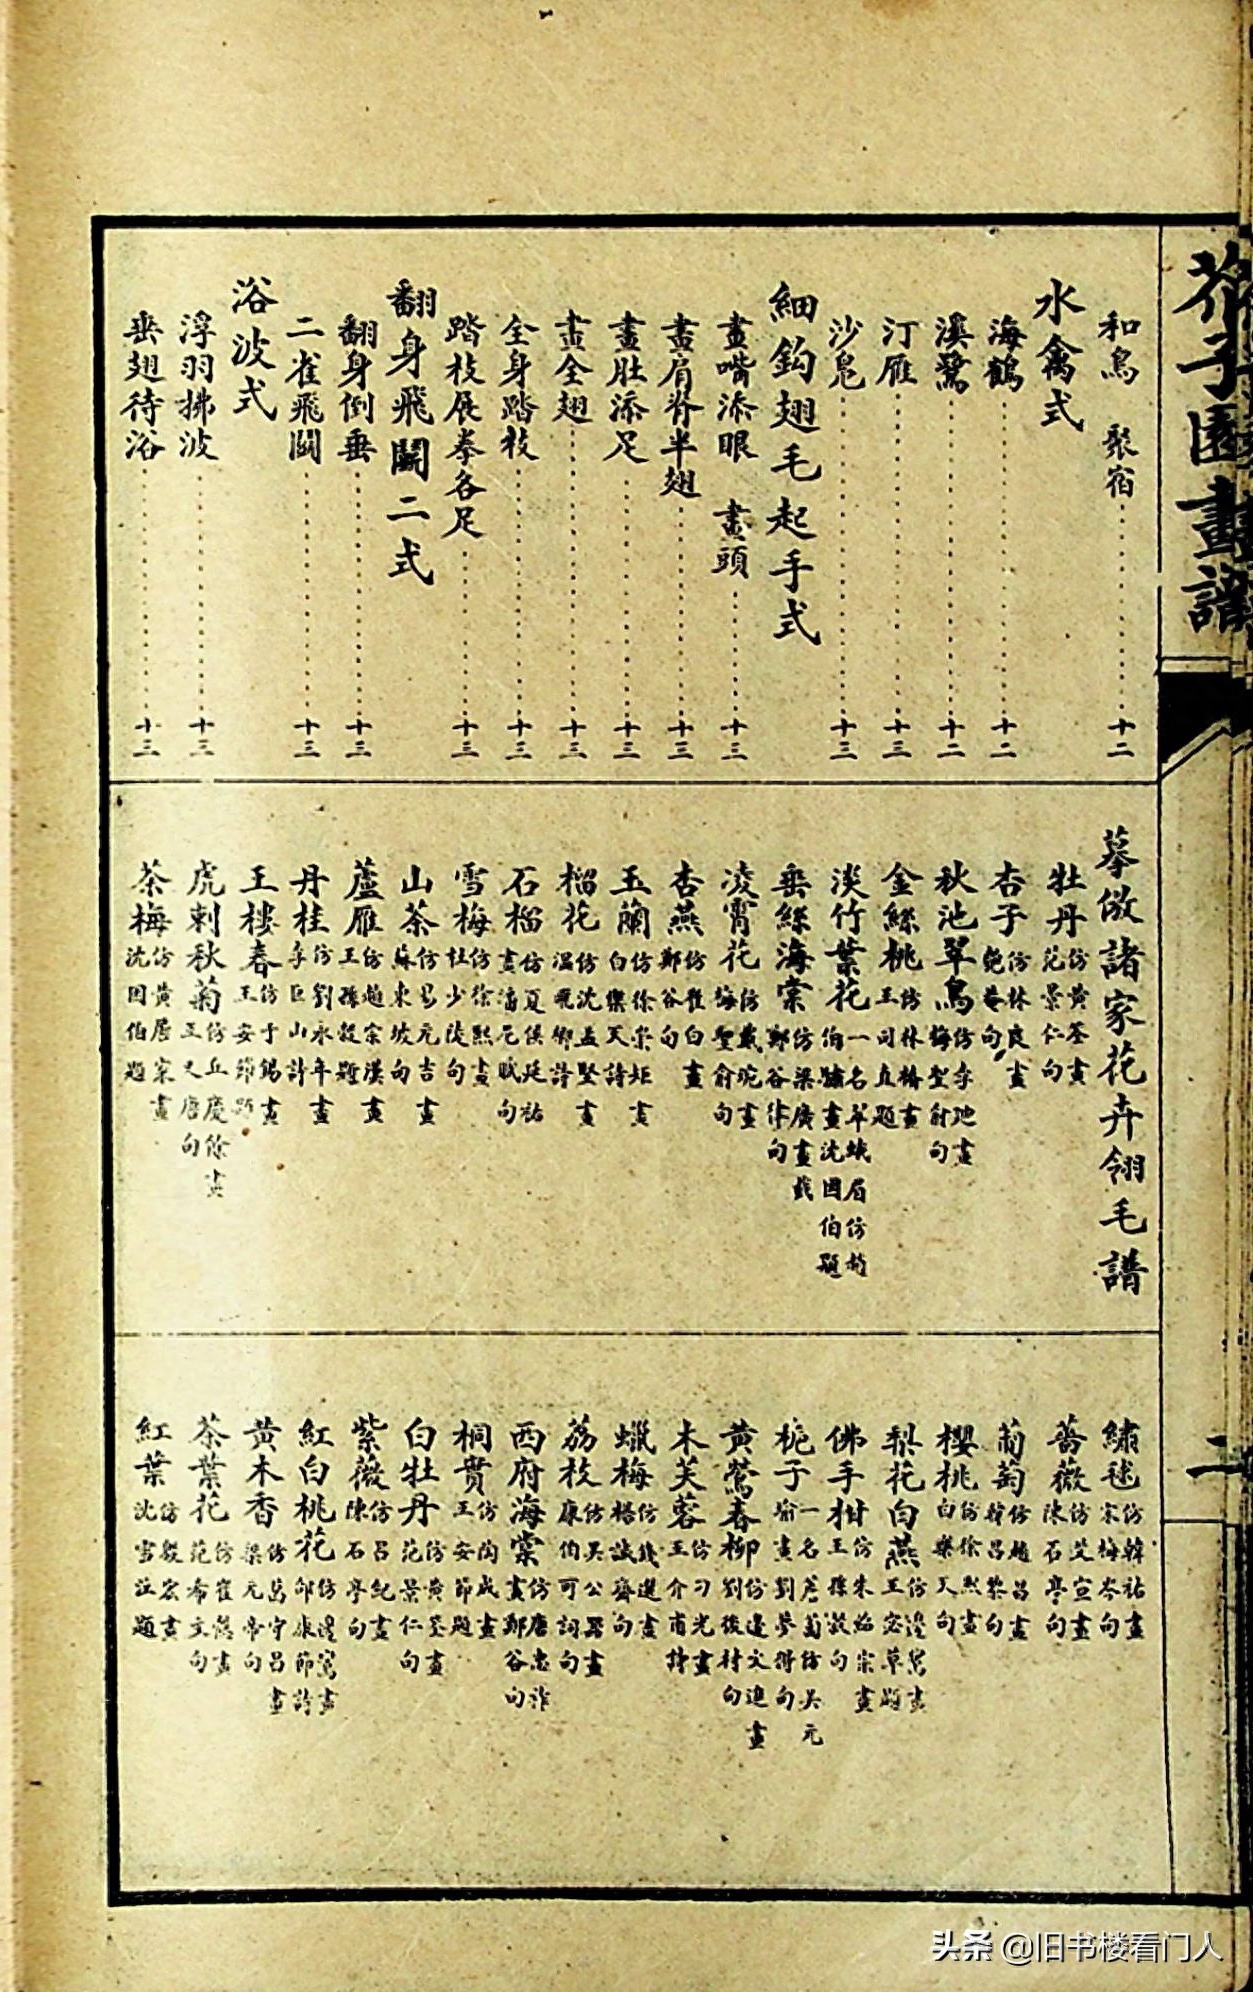 芥子園畫譜
二
和鳥　聚宿 十二
水禽式
海鶴 十二
溪鷺 十二
汀雁 十三
沙鳧 十三
細鈎翅毛起手式
畫嘴添眼　畫頭 十三
畫肩脊半翅 十三
畫肚添足 十三
畫全翅 十三
全身踏枝 十三
踏枝展拳各足 十三
翻身飛鬬二式
翻身倒垂 十三
二雀飛鬬 十三
浴波式
浮羽拂波 十三
垂翅待浴 十三
摹倣諸家花卉翎毛譜
牡丹 仿黃筌畫 范景仁句
杏子 仿林良畫 句
秋池翠鳥 仿李迪畫 梅聖俞句
金絲桃 仿林椿畫 王司直題
淡竹葉花 一名翠蛾眉仿 畫沈因伯題
垂絲海棠 仿梁廣畫 鄭谷律句
凌霄花 仿戴琬畫 梅聖俞句
杏燕 仿崔白畫 鄭谷句
玉蘭 仿徐崇矩畫 白樂天詩
榴花 仿沈孟堅畫 溫飛卿詩
石榴 仿夏侯延祐畫 潘尼賦句
雪梅 仿徐熙畫 杜少陵句
山茶 仿易元吉畫 蘇東坡句
蘆雁 仿趙宗漢畫 王孫穀題
丹桂 仿劉永年畫 李巨山詩
玉樓春 仿于錫畫 王安節題
虎刺秋菊 仿丘慶餘畫 王又唐句
茶梅 仿黃居寀畫 沈因伯題
繡毬 仿韓祐畫 宋梅岑句
薔薇 仿艾宣畫 陳石亭句
葡萄 仿趙昌畫 韓昌黎句
櫻桃 仿徐熙畫 白樂天句
梨花白燕 仿邊鸞畫 王宓草題
佛手柑 仿朱紹宗畫 王孫穀句
梔子 一名薝蔔仿吳元瑜畫 劉夢得句
黃鶯春柳 仿邊文進畫 劉後村句
木芙蓉 仿刁光畫 王介甫詩
蠟梅 仿錢選畫 楊誠齋句
荔枝 仿吳公器畫 康伯可詞句
西府海棠 仿唐忠祚畫 鄭谷句
桐實 仿陶成畫 王安節題
白牡丹 仿黃筌畫 范景仁句
紫薇 仿呂紀畫 陳石亭句
紅白桃花 仿邊鸞畫 邵康節詩
黃木香 仿葛守昌畫 梁元帝句
茶葉花 仿崔慤畫 范希文句
紅葉 仿殷宏畫 沈雪江題
头条 @旧书楼看门人